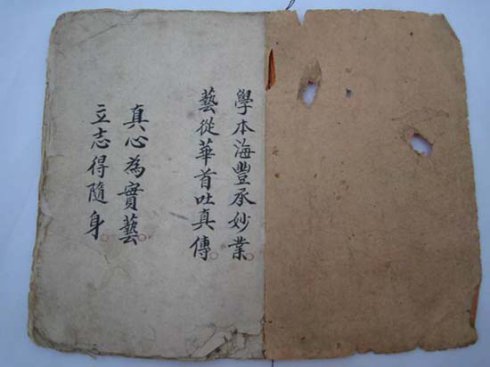 學本海豐承妙業
藝從華首吐真傳
真心為實藝
立志得隨身